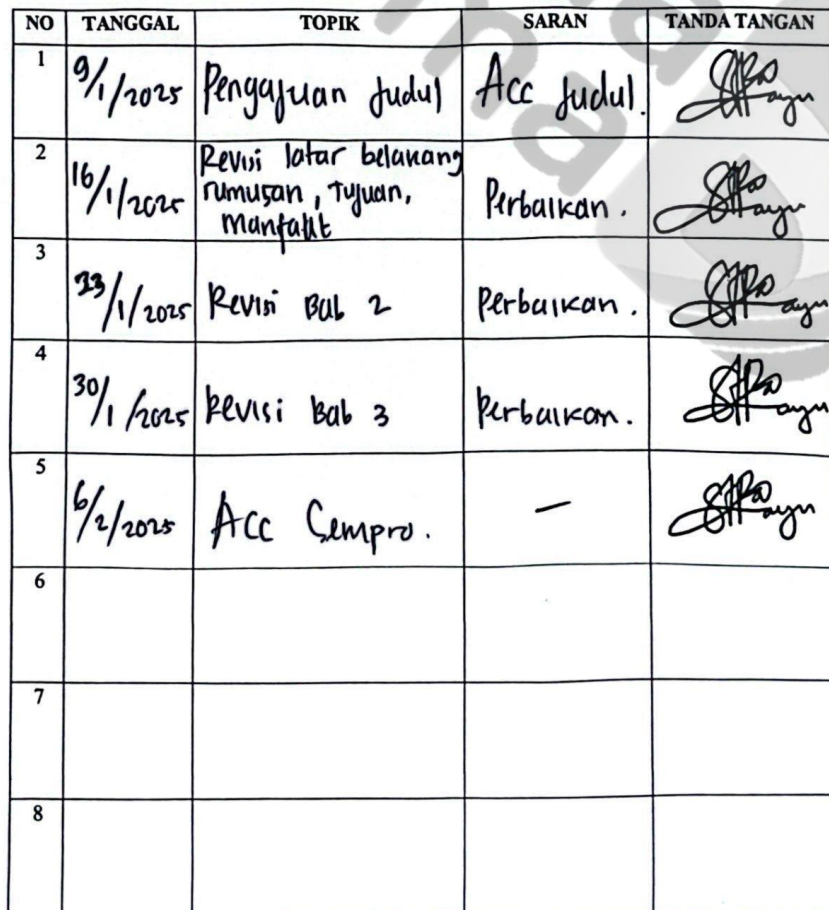 NO TANGGAL TOPIK SARAN TANDA TANGAN
1 9/1/2025 Pengajuan Judul Acc Judul.
2 16/1/2025 Revisi latar belakang
rumusan, tujuan,
Manfaat Perbaikan.
3 23/1/2025 Revisi Bab 2 Perbaikan.
4 30/1/2025 Revisi Bab 3 Perbaikan.
5 6/2/2025 Acc Sempro. —
6
7
8